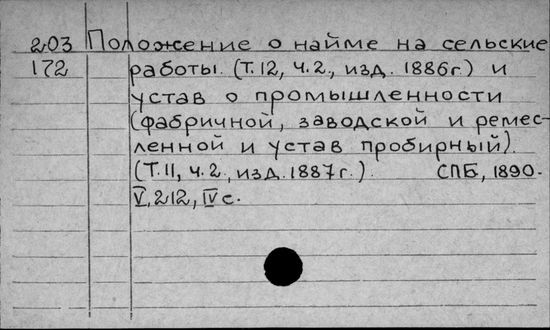 203 Положение о найме на сельские
172 работы. (Т.12, ч.2., изд. 1886г.) и
устав о промышленности
(фабричной, заводской и ремес-
ленной и устав пробирный).
(Т.11, ч.2., изд. 1887г.). СПБ, 1890.
V, 212, IV с.